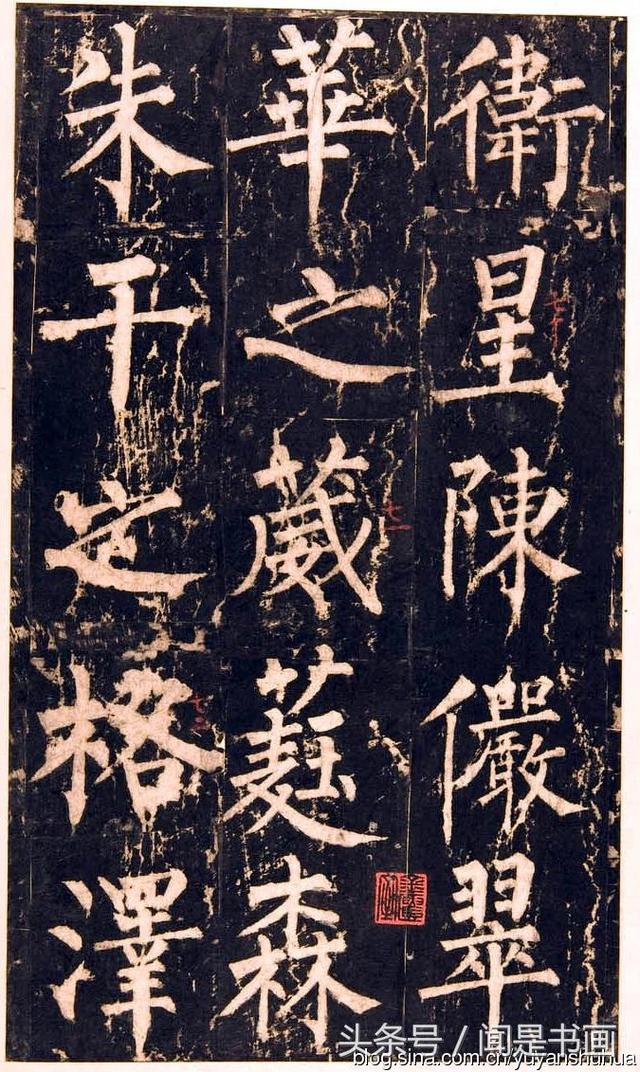 衛星陳儼翠
華之葳蕤森
朱干之格澤
七十
七一
七二
头条号 / 闻是书画
blog.sina.com.cn/yuyanshuhua